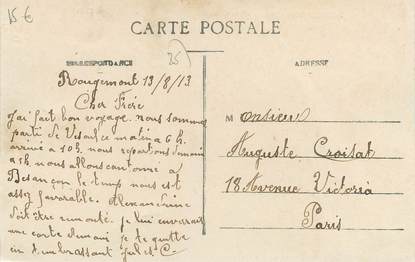 15 €
CARTE POSTALE
25
CORRESPONDANCE
ADRESSE
Rougemont 13/8/13
Cher Frère
J'ai fait bon voyage. nous sommes
parti de Vesoul ce matin a 6 h.
arrivé a 10 h. nous repartons demain
a 5h nous allons cantonné a
Besançon le temps nous est
assez favorable. Alexandrine
doit être remonté. je lui enverrais
une carte demain je te quitte
en t'embrassant
Monsieur
Auguste Croisat
18 Avenue Victoria
Paris